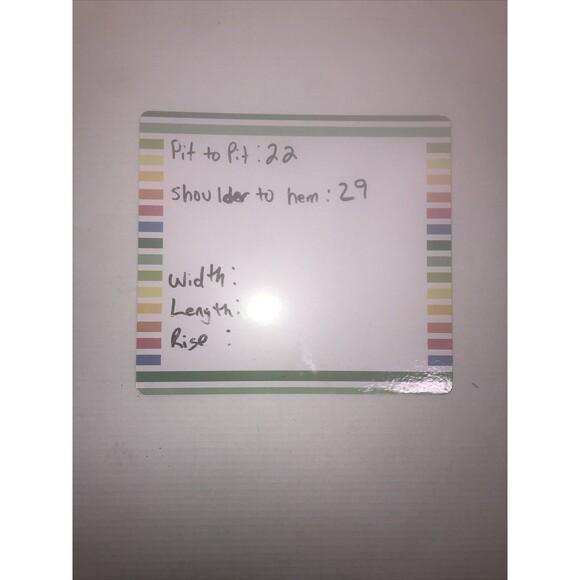 Pit to Pit: 22
Shoulder to hem: 29
Width:
Length:
Rise: